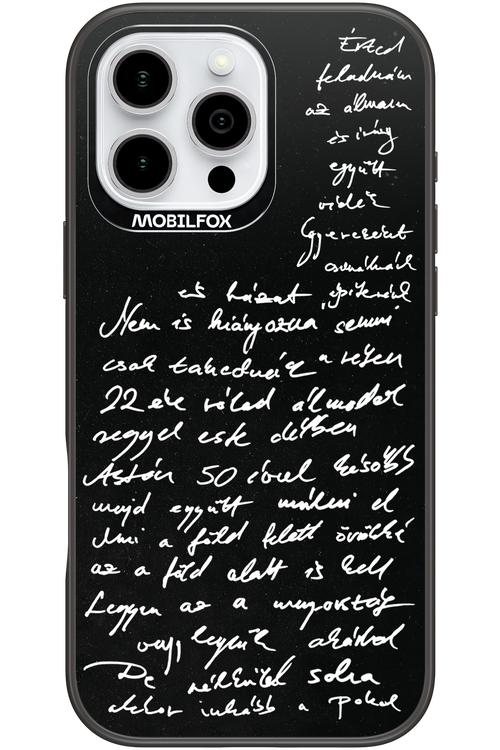 MOBILFOX
Érted
feladnám
az álmaim
és így
együtt
veled
Gyereket
csinálnék
és házat építenék
Nem is hiányozna semmi
csak takednék a részem
22 éve rólad álmodok
reggel este délben
Aztán 50 évvel később
majd együtt múlni el
Ami a föld felett örökké
az a föld alatt is kell
Legyen az a mennyország
vagy legyünk akárhol
De nélküled soha
akkor inkább a pokol